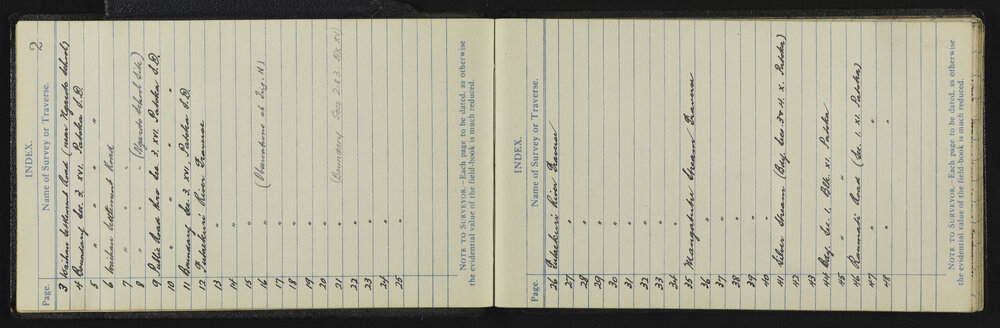 2
INDEX.
Page. Name of Survey or Traverse.
3 Waihau Settlement Road (near Ngaroto School)
4 Boundary Sec. 3. XVI. Patoka S.D.
5 " " " "
6 Waihau Settlement Road
7 " " "
8 " - - (Ngaroto School Site)
9 Public Road thro Sec. 3. XVI. Patoka S.D.
10 " " " "
11 Boundary Sec. 3. XVI. Patoka S.D.
12 Tutaekuri River Traverse
13 "
14 "
15 " "
16 " " (Observations at Trig. H)
17 "
18 "
19 "
20 "
21 " (Boundary Secs 2 & 3. Blk XV)
22 "
23 "
24 "
25 "
NOTE TO SURVEYOR.—Each page to be dated, as otherwise
the evidential value of the field-book is much reduced.
INDEX.
Page. Name of Survey or Traverse.
26 Tutaekuri River Traverse
27 "
28 "
29 "
30 "
31 "
32 "
33 "
34 "
35 Mangatutu Stream Traverse
36 "
37 "
38 "
39 "
40 "
41 Silver Stream (Bdy. Secs 3 & 4. X. Patoka)
42
43
44 Bdy. Sec. 1. Blk. XI. Patoka
45 " "
46 Raumati Road (Sec. 1. XI. Patoka)
47 " "
48 " "
NOTE TO SURVEYOR.—Each page to be dated, as otherwise
the evidential value of the field-book is much reduced.